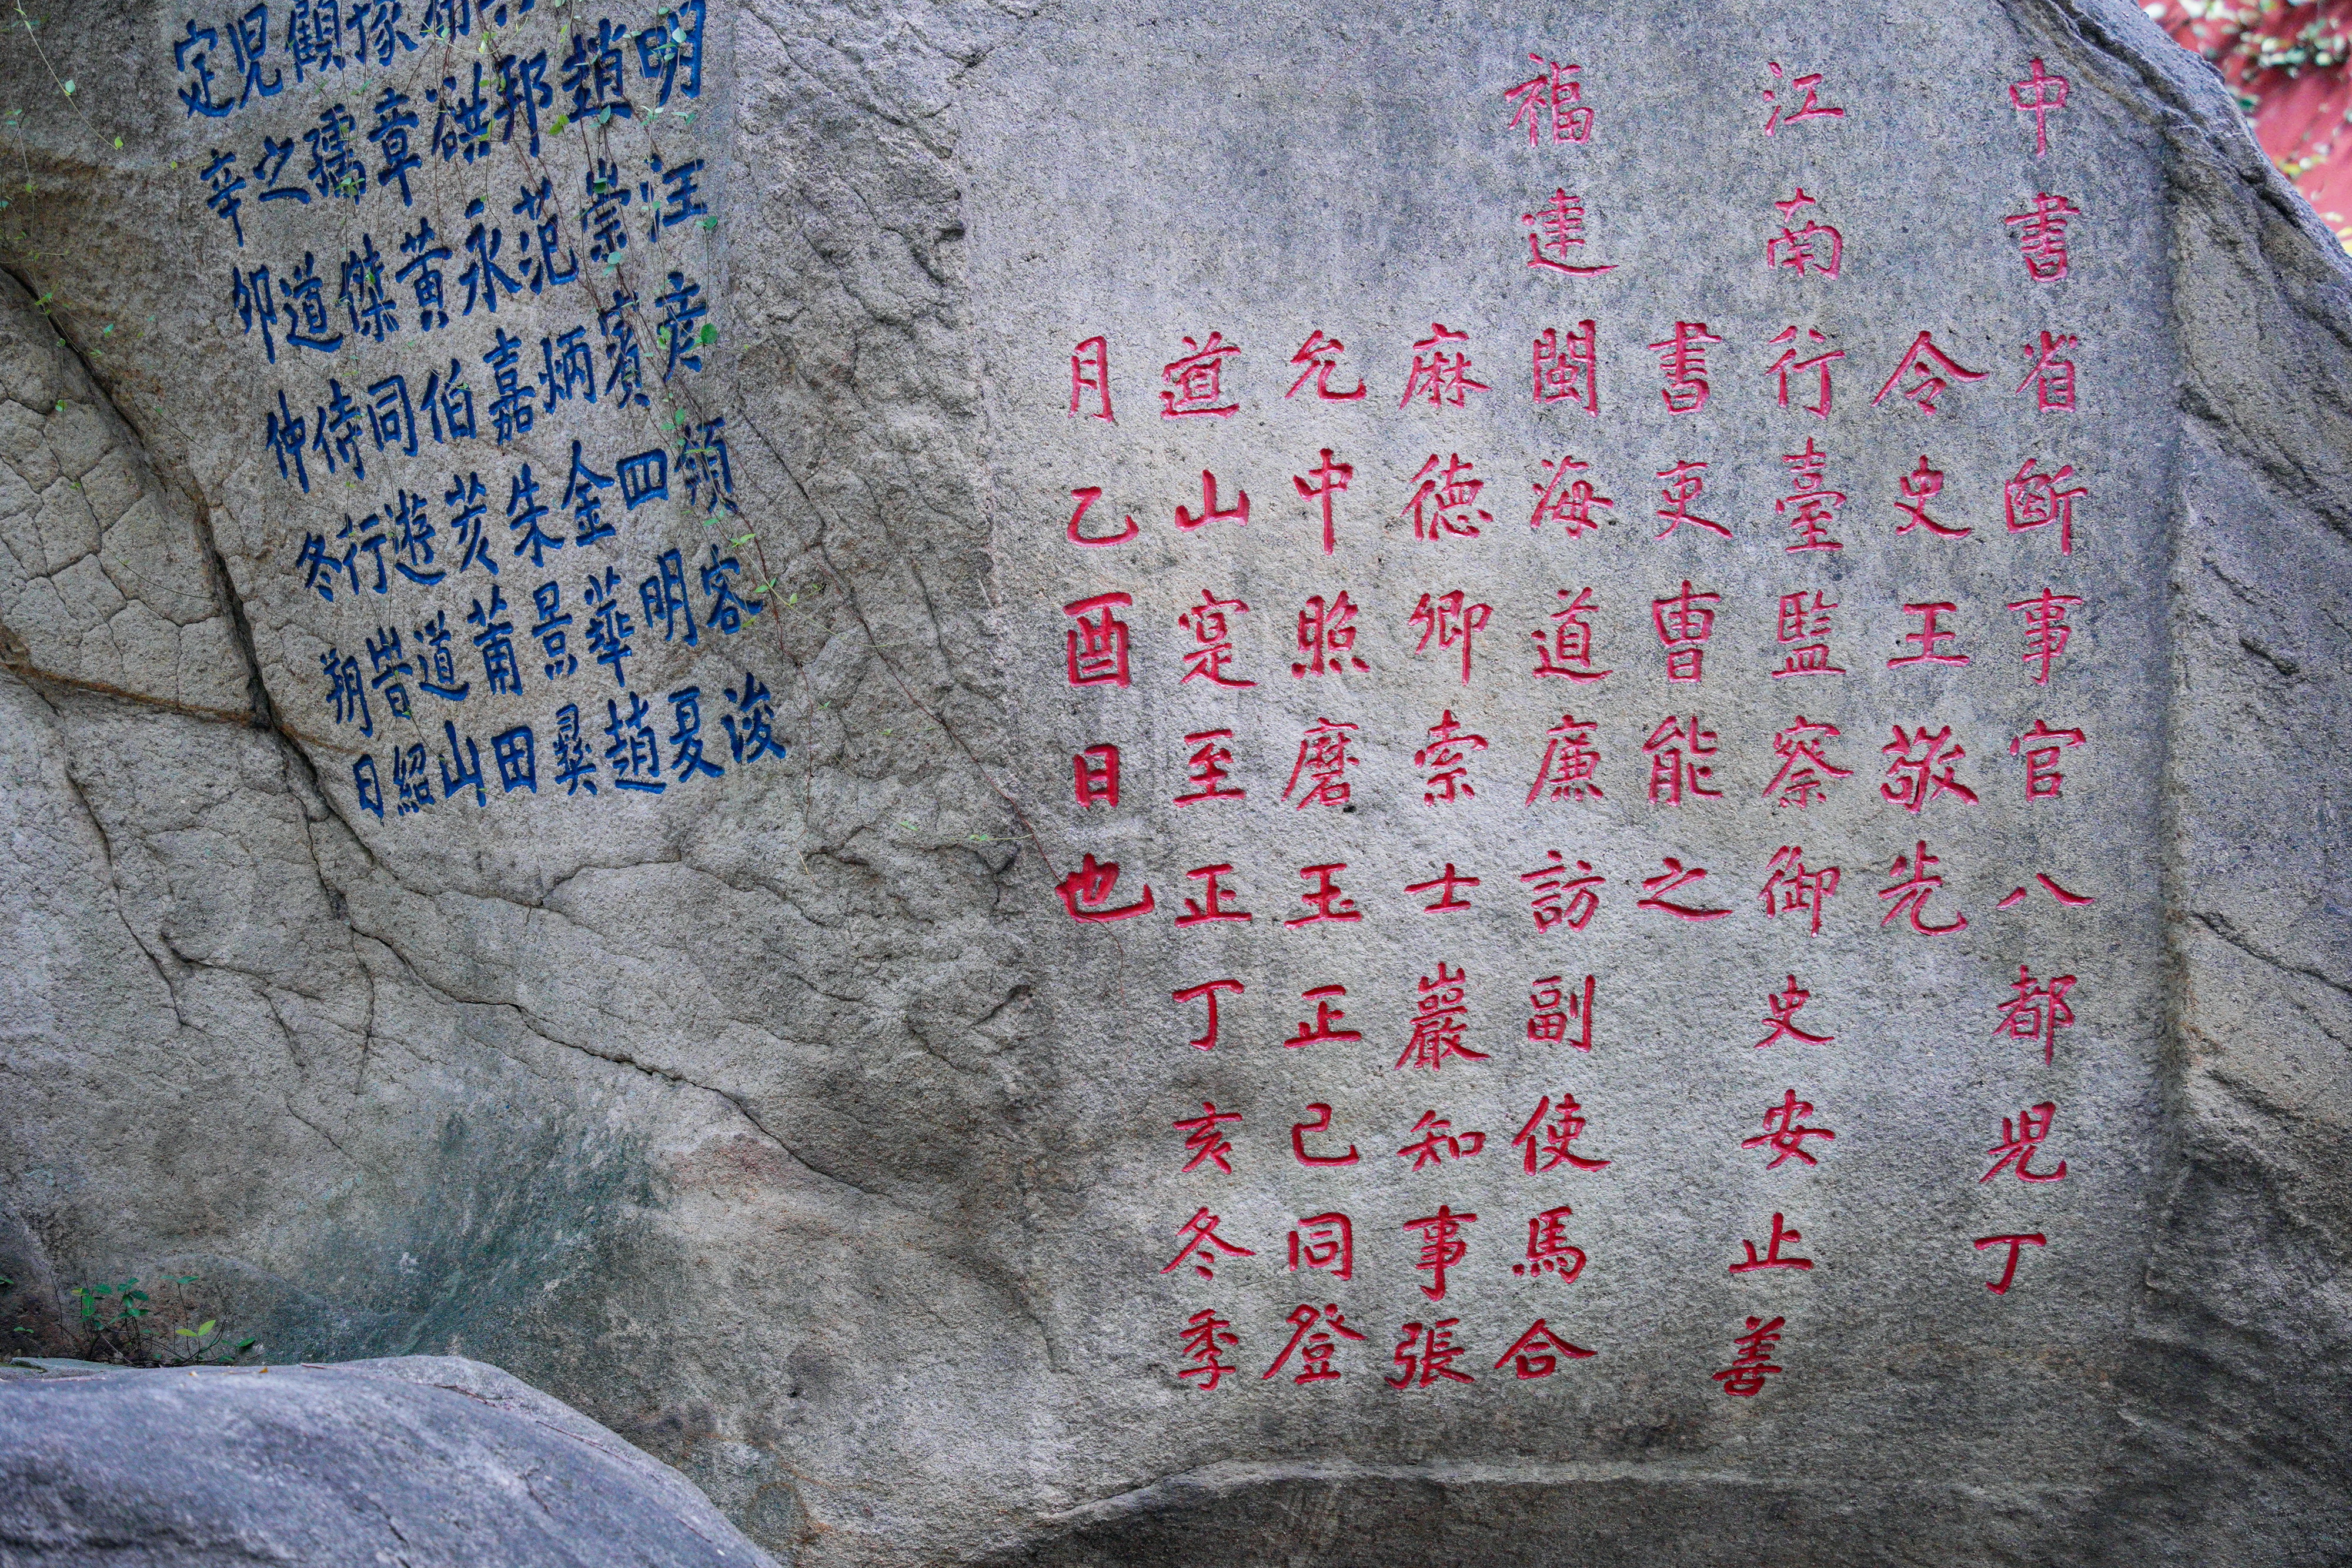 中書省断事官八都児丁
令史王敬先
江南行臺監察御史安止善
書吏曹能之
福建閩海道廉訪副使馬合
麻德卿索士巖知事張
允中照磨玉正己同登
道山寔至正丁亥冬季
月乙酉日也
明汪彦客浚
趙崇賓四明夏
邦范炳金華趙
甫永嘉朱景彝
豫章黄伯炎莆田
顧孺傑同遊道山
児之道侍行旹紹
定辛卯仲冬朔日